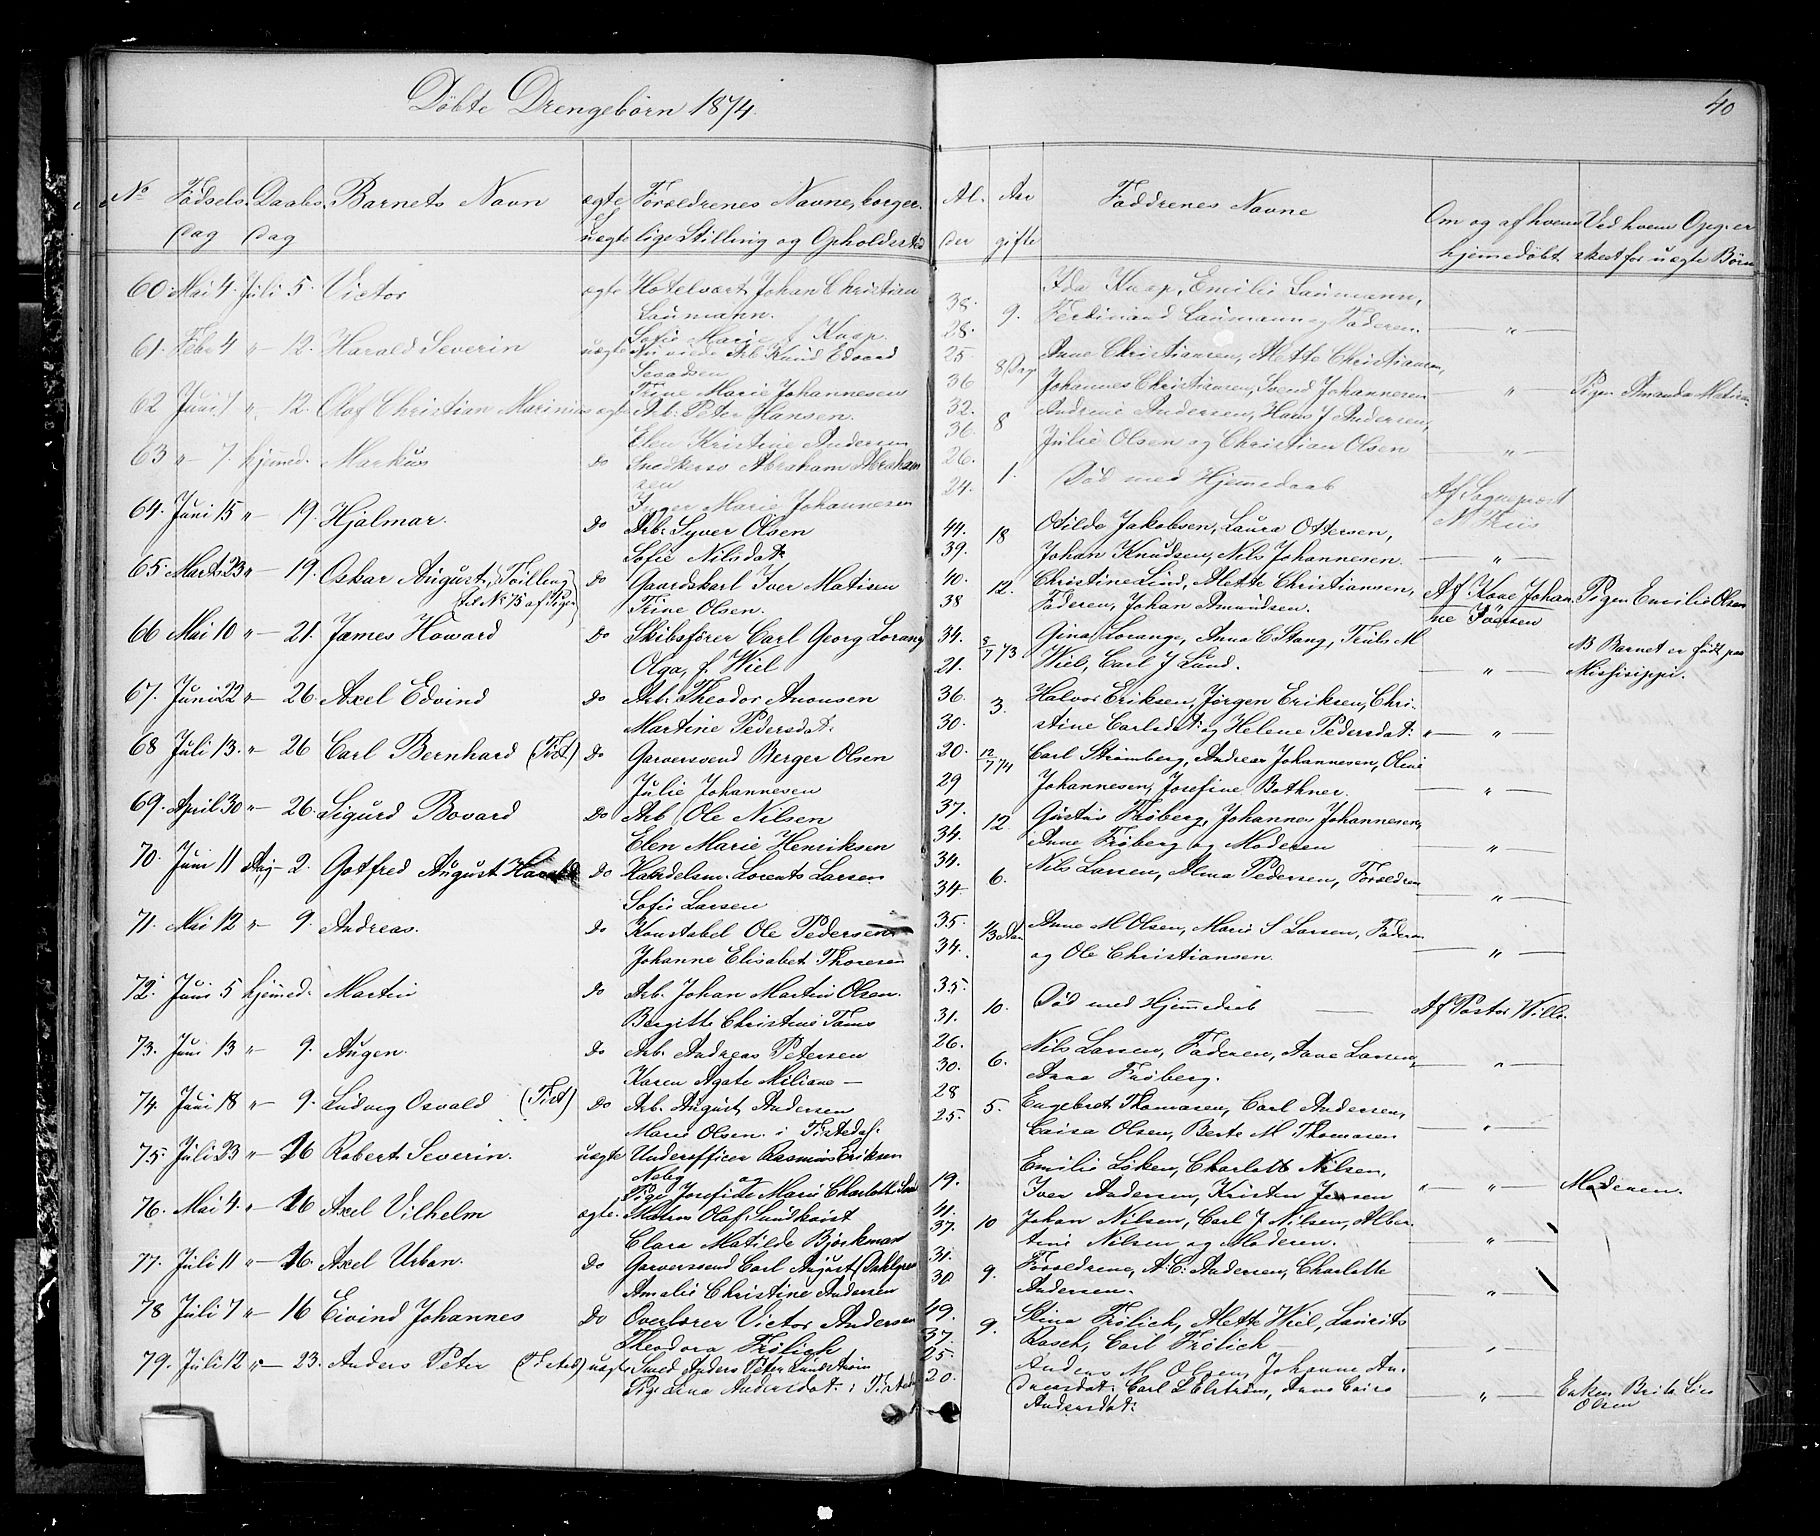 Döbte Drengebørn 1874.
40
No Födsels Daabs Barnets Navn ægte Forældrenes Navne, borger- Al- An Faddrenes Navne Om og af hvem Ved hvem Opg. er
dag dag el uægte lige Stilling og Opholdsted der gifte hjemedøbt skeet for uægte Børn
60 Mai 4. Juli 5. Victor ægte Hotelvært Johan Christian 38. 9. Ida Kaap, Emilie Laumann,
Laumann. 28. Ferdinand Laumann og Faderen — " —
Sofie Marie f. Kaap.
61. Febr 4 " 12. Harald Severin uægte Arb. Knud Edvard 25 Anne Christiansen, Mette Christiansen,
Trine Marie Johannesen 36 Johannes Christiansen, Svend Johannesen — " — Pigen Amanda
62 Juni 1 " 12. Olaf Christian Marinius ægte Arb. Peter Hansen. 32. 8 Andrine Andersen, Hans J Andersen,
Elen Kristine Andersen 36. Julie Olsen og Christian Olsen — " —
63 " 7. hjemed. Markus do Snedkersv Abraham Abraham 26. 1. Død med Hjemedaab Af Sogneprest
sen 24. N Friis
Inger Marie Johannesen
64. Juni 15 " 19. Hjalmar. do Arb. Syver Olsen 44. 18 Otilde Jakobsen, Laura Ottersen,
Sofie Nilsdat: 39. Johan Knudsen, Nils Johannesen. — " —
65 Marts 23 " 19. Oskar August, (Tvilling do Gaardskarl Iver Matisen 40. 12. Christine Lind, Mette Christiansen, Af Kone Johan Pigen Emilie Olsen
til No 75 af Piger) Trine Olsen. 38 Faderen, Johan Amundsen. ne Iversen
66 Mai 10 " 21. James Howard do Skibsfører Carl Georg Lorang 34. 8/7 73 Gina Lorange, Anna C Stang, Truls M NB Barnet er født paa
Olga, f. Wiel 21. Wiel, Carl J Lund. — " — Missisippi.
67. Juni 22 " 26. Axel Edvind do Arb. Theodor Amonsen 36. 3. Halvor Eriksen, Jørgen Eriksen, Chri-
Martine Pedersdat: 30. stine Carlsdat: og Helene Pedersdat: " — " —
68 Juli 13. " 26 Carl Bernhard (Tist) do Garversvend Berger Olsen 20. 12/7 74 Carl Strømberg, Andreas Johannesen, Oline
Julie Johannesen 29 Johannesen, Josefine Bothner. — " —
69. April 30 " 26. Sigurd Bovard do Arb Ole Nilsen 37. 12. Gustav Frøberg, Johannes Johannesen,
Elen Marie Henriksen 34. Anne Frøberg og Moderen — " —
70. Juni 11 Aug 2. Gotfred August Harald do Handelsm. Lorents Larsen 34. 6. Nils Larsen, Alma Pedersen, Forældrene
Sofie Larsen 34. — " —
71. Mai 12 " 9. Andreas. do Konstabel Ole Pedersen 35. Anne M Olsen, Marie S Larsen, Faderen
Johanne Elisabet Thoresen 34. og Ole Christiansen. — " —
72. Juni 5 hjemed. Martin do Arb. Johan Martin Olsen. 35. 10. Død med Hjemedaab — Af Pastor Wille.
Bergitte Christine Tams 31.
73. Juni 13 " 9. Augen. do Arb. Andreas Petersen 26. 6. Nils Larsen, Faderen, Anne Larsen,
Karen Agate Miliane — 30. Anna Frøberg. — " —
74. Juni 18 " 9. Ludvig Osvald (Tist) do Arb. August Andersen 28 5. Engebret Thomasen, Carl Andersen,
Marie Olsen i Tistedal: 25. Caisa Olsen, Berte M Thomasen — " —
75. Juli 23 " 16 Robert Severin. uægte Underofficer Rasmus Eriksen Emilie Løken, Charlotte Nilsen,
og
Pige Josefine Marie Charlotte 19. Iver Andersen, Kristen Jensen " — " — Moderen.
76. Mai 4. " 16 Axel Vilhelm ægte. Matros Olaf Sundkvist 41. 10 Johan Nilsen, Carl J Nilsen, Alber-
Clara Matilde Björkman 37. tine Nilsen og Moderen. — " —
77. Juli 11 " 16. Axel Urban. do Garversvend Carl August Dahlgren 31. 9. Forældrene, A. C. Andersen, Charlotte
Amalie Christine Andersen 30. Andersen. — " —
78 Juli 7 " 16 Eivind Johannes do Overlærer Victor Andersen 49. 9. Stina Frölich, Mette Wiel, Laurits
Theodora Frölich 37. Rasch, Carl Frölich — " —
79. Juli 12 " 23. Anders Peter (Tisted) uægte Smed Anders Peter Lundström 25. Anders M Olsen, Johanne An-
Pige Andersdat: i Tistedal 20. dreasdat: Carl L Elström, Anne Caisa — " — Enken Brita Lisa
Andersdat: Olsen